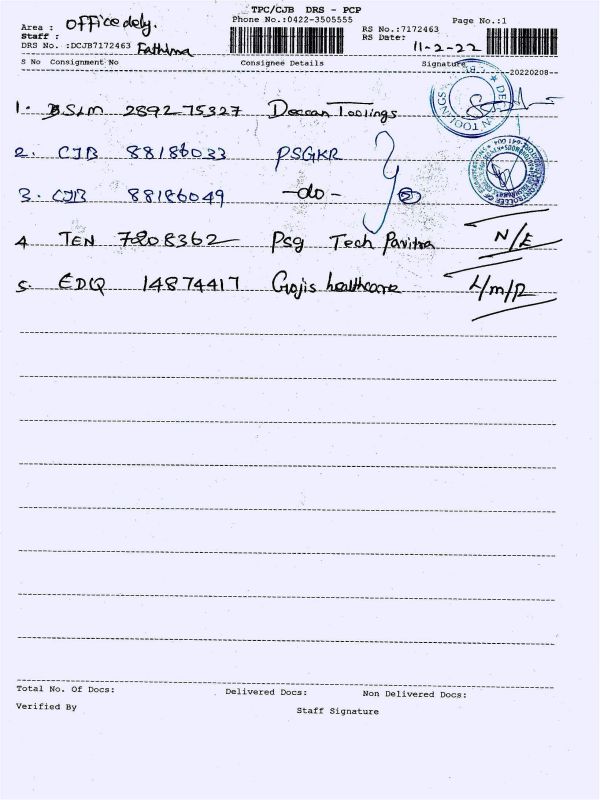 TPC/CJB DRS - PCP
Area : Office dely.
Phone No.:0422-3505555
Page No.:1
Staff : Fathima
RS No.:7172463
DRS No. :DCJB7172463
RS Date: 11-2-22
S No Consignment No Consignee Details Signature
20220208
1. BSLM 289275327 Deccan Toolings
DECCAN TOOLINGS
2. CJB 88186033 PSGKR
3. CJB 88186049 -do-
4 TEN 78208362 Psg Tech Pavitra N/E
5. EDQ 14874417 Gojis healthcare L/m/R
Total No. Of Docs: Delivered Docs: Non Delivered Docs:
Verified By Staff Signature